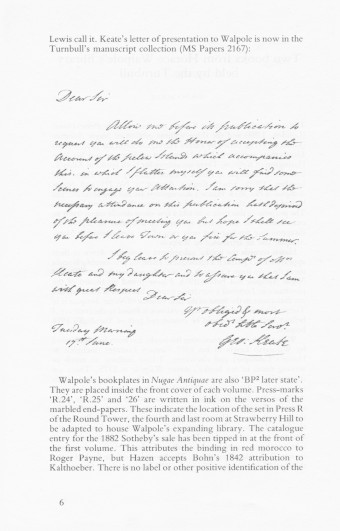 Lewis call it. Keate's letter of presentation to Walpole is now in the
Turnbull's manuscript collection (MS Papers 2167):
Dear Sir
Allow me before its publication to
request you will do me the Honor of accepting the
Account of the pelew Islands which accompanies
this. in which I flatter myself you will find some
Scenes to engage your Attention. I am sorry that the
necessary attendance on this publication hath deprived
of the pleasure of meeting you but hope I shall see
you before I leave Town or you fix for the Summer.
I beg leave to present the Compts of Mrs
Keate and my daughter and to assure you that I am
with great Respect
Dear Sir
Yr obliged & most
obedt hble Servt
Geo: Keate
Tuesday Morning
17th June.
Walpole's bookplates in Nugae Antiquae are also 'BP² later state'.
They are placed inside the front cover of each volume. Press-marks
'R.24', 'R.25' and '26' are written in ink on the versos of the
marbled end-papers. These indicate the location of the set in Press R
of the Round Tower, the fourth and last room at Strawberry Hill to
be adapted to house Walpole's expanding library. The catalogue
entry for the 1882 Sotheby's sale has been tipped in at the front of
the first volume. This attributes the binding in red morocco to
Roger Payne, but Hazen accepts Bohn's 1842 attribution to
Kalthoeber. There is no label or other positive identification of the
6